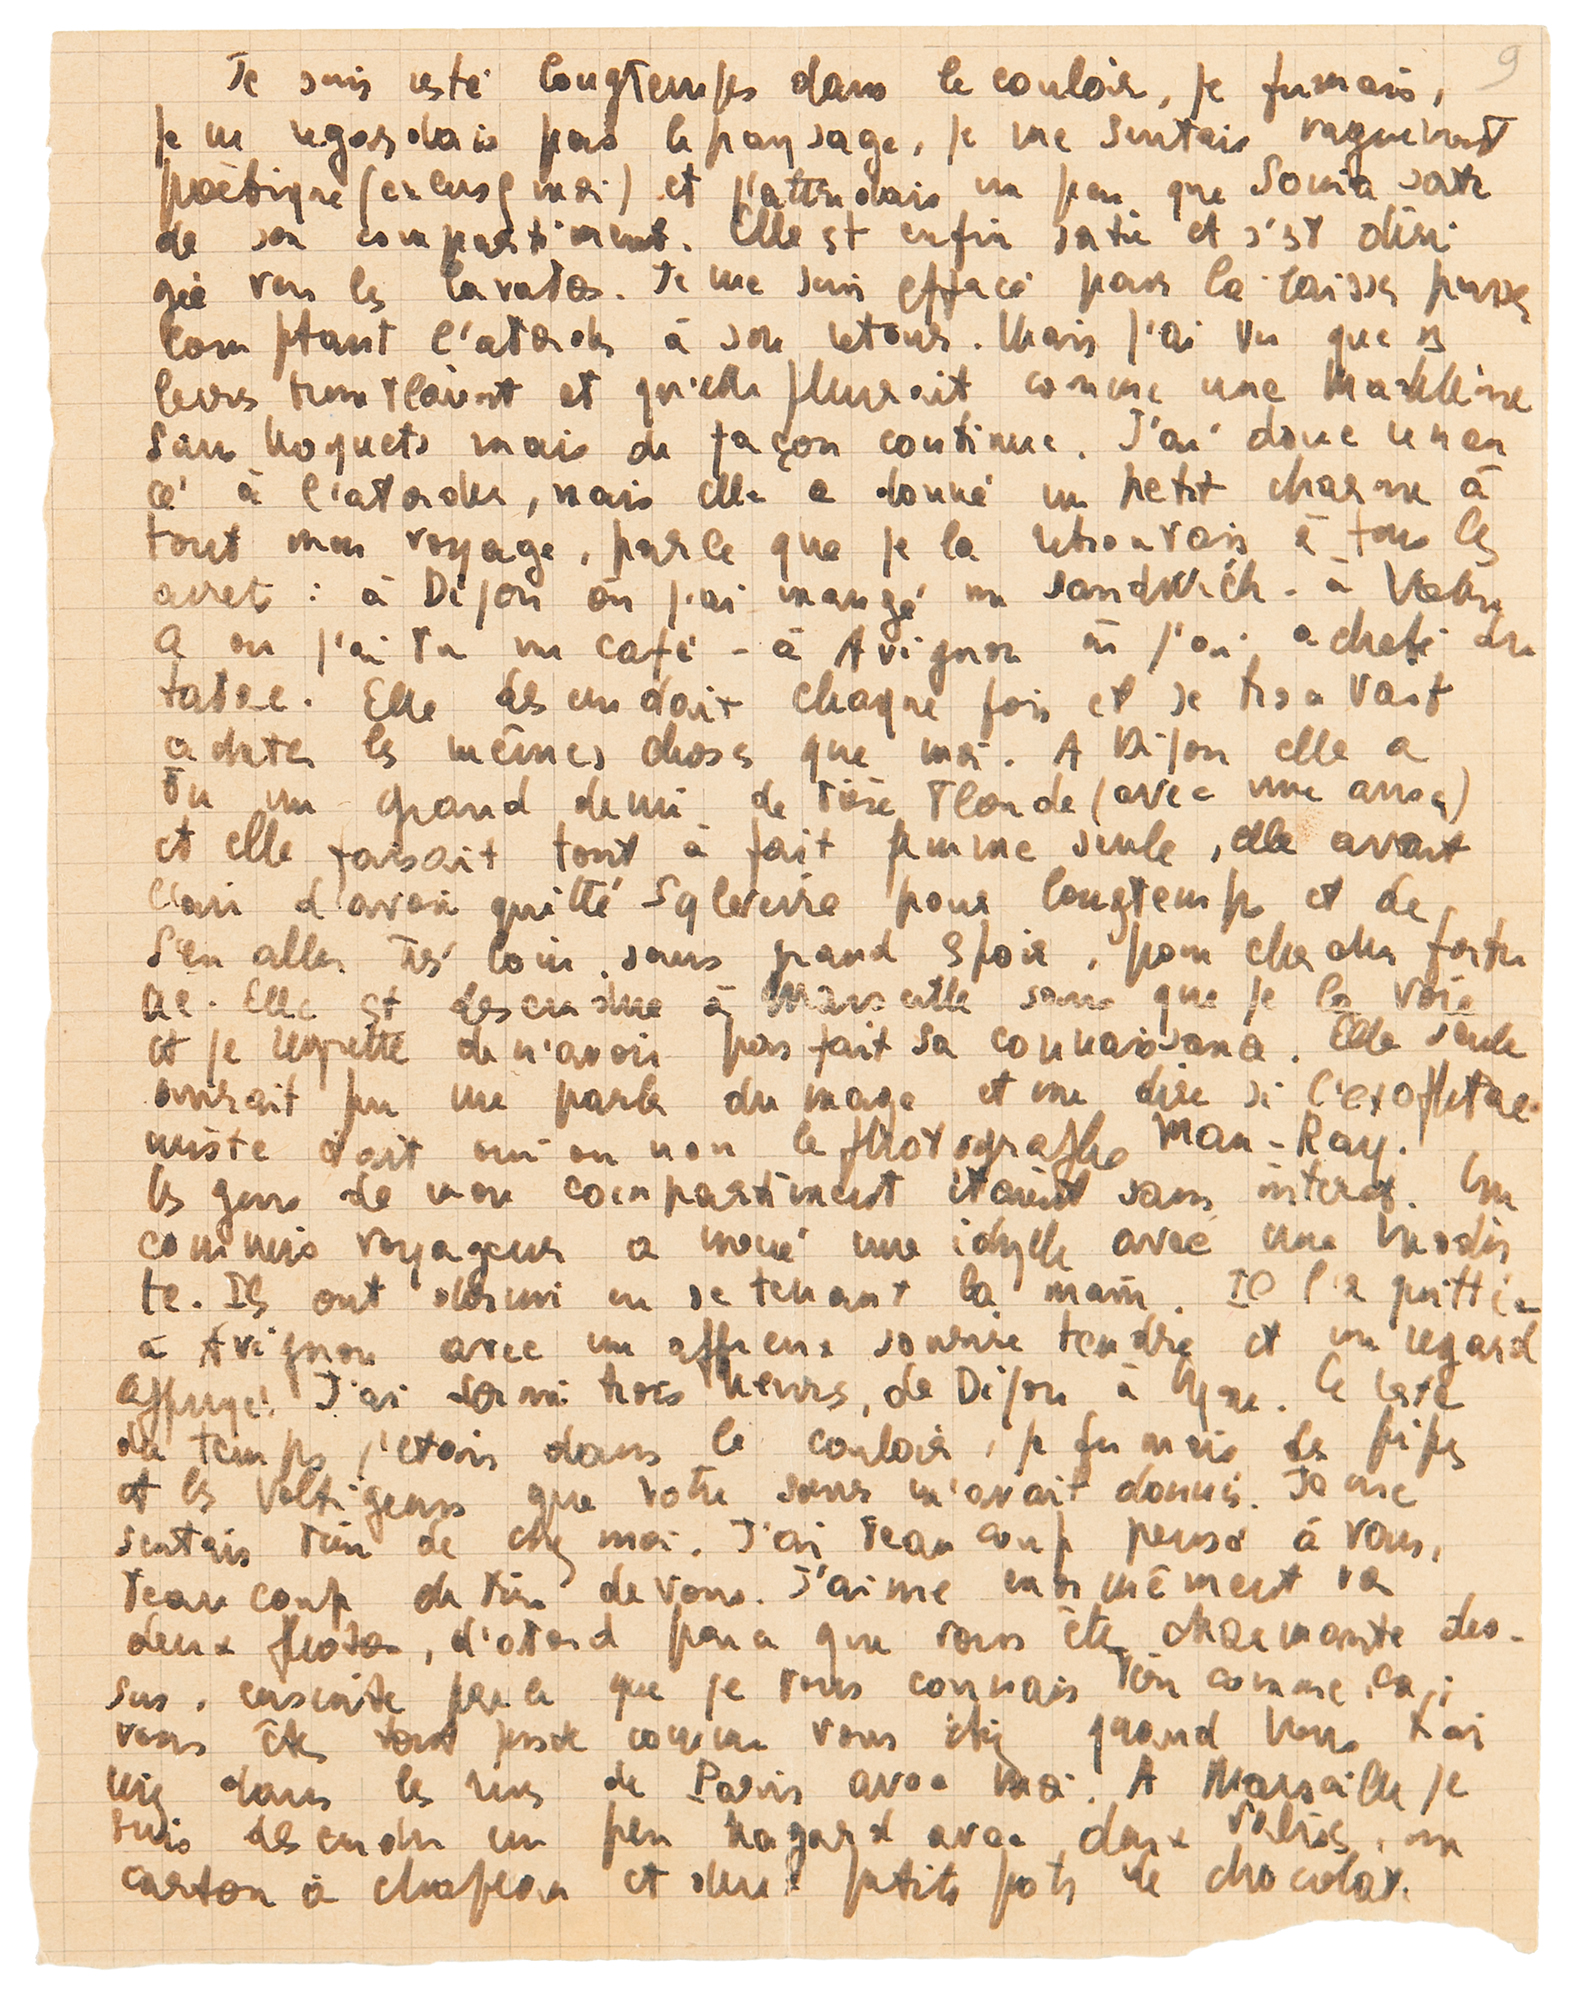 9
Je suis resté longtemps dans le couloir, je fumais,
je ne regardais pas le paysage, je me sentais vaguement
poétique (excusez moi) et j'attendais un peu que Sonia sorte
de son compartiment. Elle est enfin sortie et s'est diri
gée vers les lavabos. Je me suis effacé pour la laisser passer
comptant l'aborder à son retour. Mais j'ai vu que ses
levres tremblaient et qu'elle pleurait comme une Madeleine
sans hoquets mais de façon continue. J'ai donc renon
cé à l'aborder, mais elle a donné un petit charme à
tout mon voyage, parce que je la retrouvais à tous les
arrets : à Dijon où j'ai mangé un sandwich - à Valen
ce ou j'ai bu un café - à Avignon où j'ai acheté du
tabac. Elle descendait chaque fois et se trouvait
acheter les mêmes choses que moi. A Dijon elle a
bu un grand demi de bière blonde (avec une anse)
et elle faisait tout à fait femme seule, elle avait
l'air d'avoir quitté pour longtemps et de
s'en aller très loin, sans grand espoir, pour chercher fortu
ne. Elle est descendue à Marseille sans que je la voie
et je regrette de n'avoir pas fait sa connaissance. Elle seule
aurait pu me parler du mage et me dire si l'exophtal
miste était oui ou non le photographe Man-Ray.
les gens de mon compartiment étaient sans intéret. Un
commis voyageur a noué une idylle avec une modis
te. Ils ont dormi en se tenant la main. Il l'a quittée
à Avignon avec un affreux sourire tendre et un regard
appuyé. J'ai dormi trois heures, de Dijon à Lyon. Le reste
du temps j'etais dans le couloir, je fumais des pipes
et les Voltigeurs que votre soeur m'avait donnés. Je me
sentais bien de chez moi. J'ai beaucoup pensé à vous,
beaucoup et bien de vous. J'aime énormément vos
deux photos, d'abord parce que vous êtes charmante des-
sus, ensuite parce que je vous connais bien comme ça ;
vous êtes tout juste comme vous étiez quand vous trai
niez dans les rues de Paris avec moi. A Marseille je
suis descendu un peu hagard avec deux valises, un
carton à chapeau et deux petits pots de chocolat.